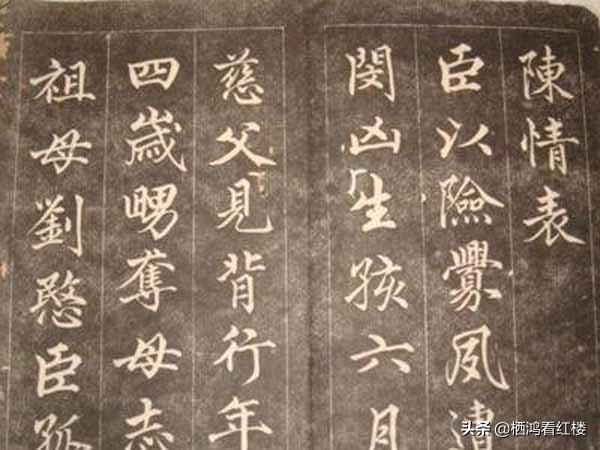 陳情表
臣以險釁夙遭
閔凶生孩六月
慈父見背行年
四歲舅奪母志
祖母劉愍臣孤
头条 @栖鸿看红楼